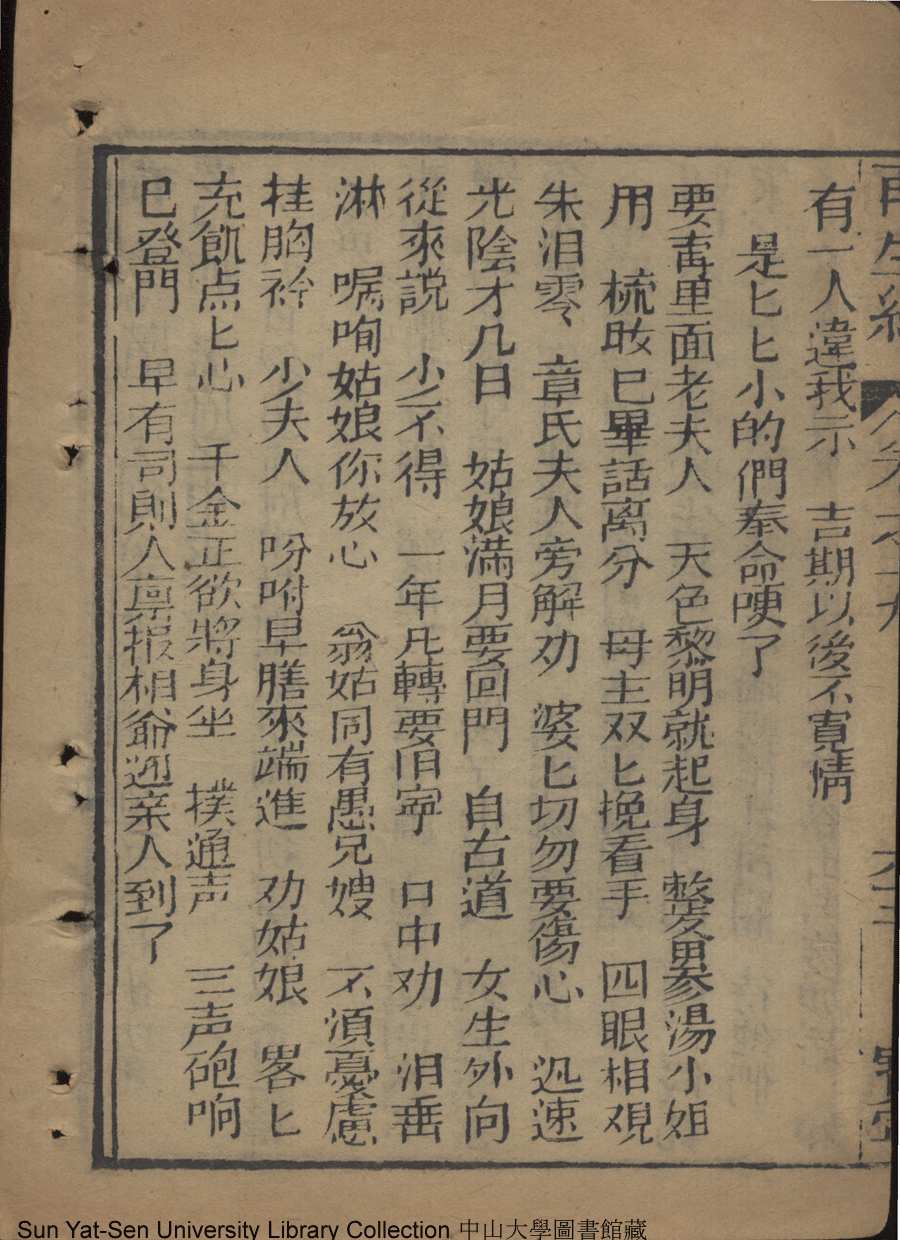 再生緣
有一人違我示　吉期以後不寬情
是匕匕小的們奉命哽了
要畨里面老夫人　天色黎明就起身　整处畧参湯小姐
用　梳𢼸已畢話离分　母主双匕挽看手　四眼相覌
朱泪零々　章氏夫人旁解劝　婆匕切勿要傷心　迅速
光陰才几日　姑娘滿月要回門　自古道　女生外向
從來說　少不得　一年凢轉要旧寧　口中劝　泪垂
淋　嘱咰姑娘你放心　翁姑同有愚兄嫂　不須憂慮
挂胸衿　少夫人　吩咐早膳來端進　劝姑娘　畧匕
充飢点匕心　千金正欲將身坐　撲通声　三声砲响
已登門　早有司則人禀报相爺迎亲人到了
Sun Yat-Sen University Library Collection 中山大學圖書館藏